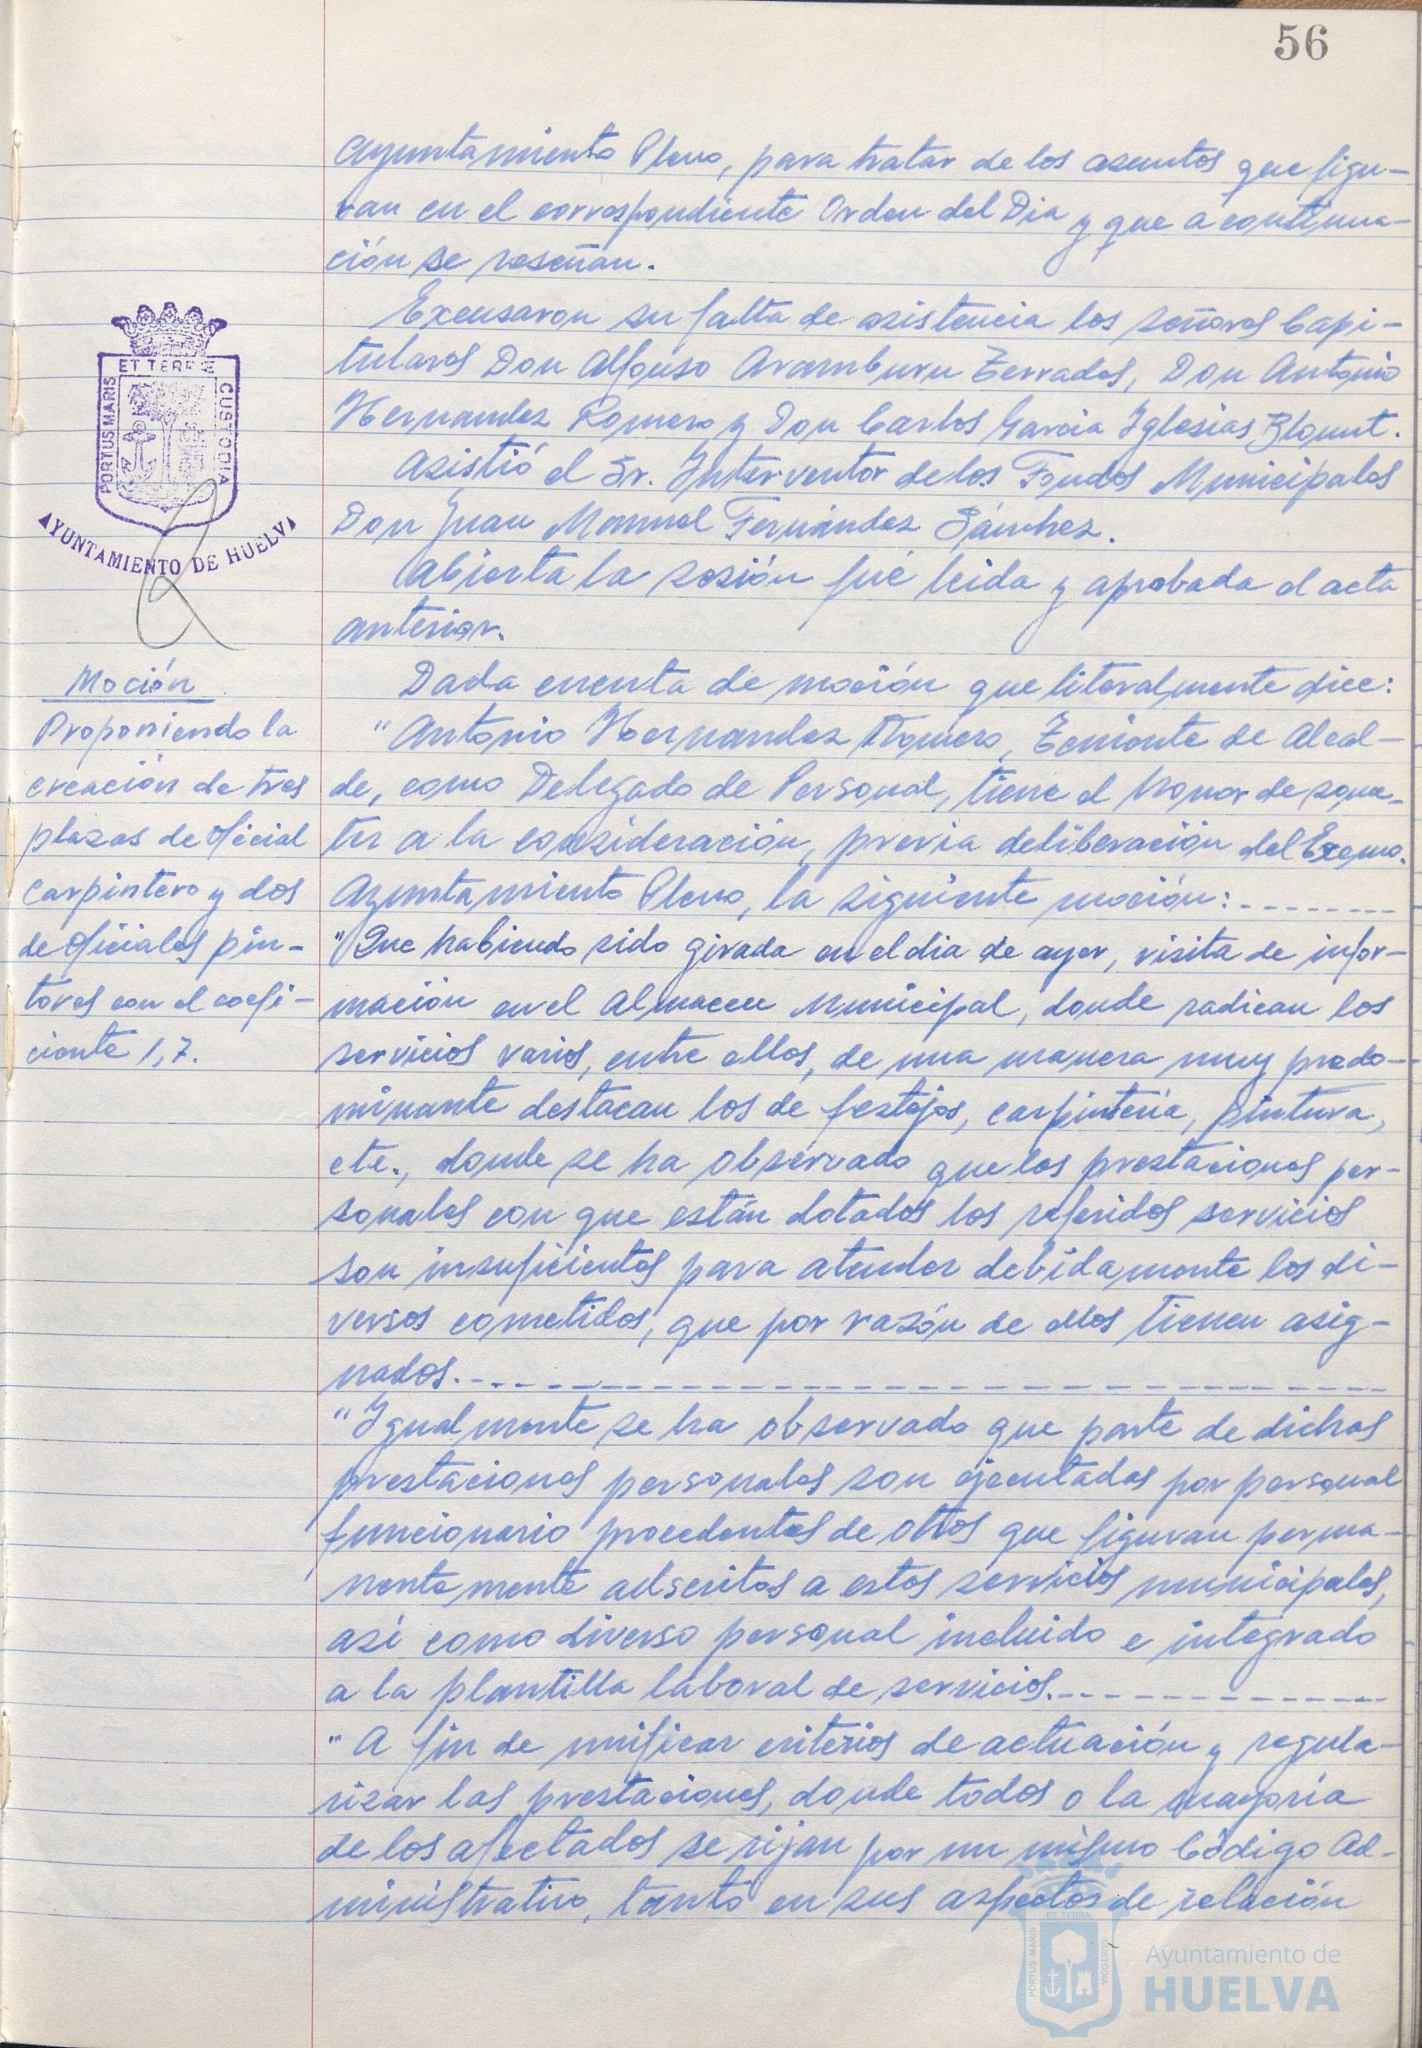 56
Ayuntamiento Pleno, para tratar de los asuntos que figu-
ran en el correspondiente Orden del Dia y que a continua-
ción se reseñan.
Excusaron su falta de asistencia los señores Capi-
tulares Don Alfonso Aramburu Terrades, Don Antonio
Hernandez Romero y Don Carlos Garcia Iglesias Blount.
Asistió el Sr. Interventor de los Fondos Municipales
Don Juan Manuel Fernández Sánchez.
Abierta la sesión fué leida y aprobada el acta
anterior.
PORTUS MARIS ET TERRE CUSTODIA
AYUNTAMIENTO DE HUELVA
Moción
Proponiendo la
creación de tres
plazas de Oficial
Carpintero y dos
de Oficiales pin-
tores con el coefi-
ciente 1,7.
Dada cuenta de moción que literalmente dice:
"Antonio Hernandez Romero, Teniente de Alcal-
de, como Delegado de Personal, tiene el honor de some-
ter a la consideración, previa deliberación del Excmo.
Ayuntamiento Pleno, la siguiente moción:--------
"Que habiendo sido girada en el dia de ayer, visita de infor-
mación en el Almacen Municipal, donde radican los
servicios varios, entre ellos, de una manera muy predo-
minante destacan los de festejos, carpintería, pintura,
etc., donde se ha observado que los prestaciones per-
sonales con que están dotados los referidos servicios
son insuficientes para atender debidamente los di-
versos cometidos, que por razón de ellos tienen asig-
nados.--------------------
"Igualmente se ha observado que parte de dichas
prestaciones personales son ejecutadas por personal
funcionario procedentes de otros que figuran perma-
nentemente adscritos a estos servicios municipales,
así como diverso personal incluido e integrado
a la plantilla laboral de servicios.------------
"A fin de unificar criterios de actuación y regula-
rizar las prestaciones, donde todos o la mayoría
de los afectados se rijan por un mismo Código Ad-
ministrativo, tanto en sus aspectos de relación
PORTUS MARIS ET TERRA CUSTODIA
Ayuntamiento de
HUELVA